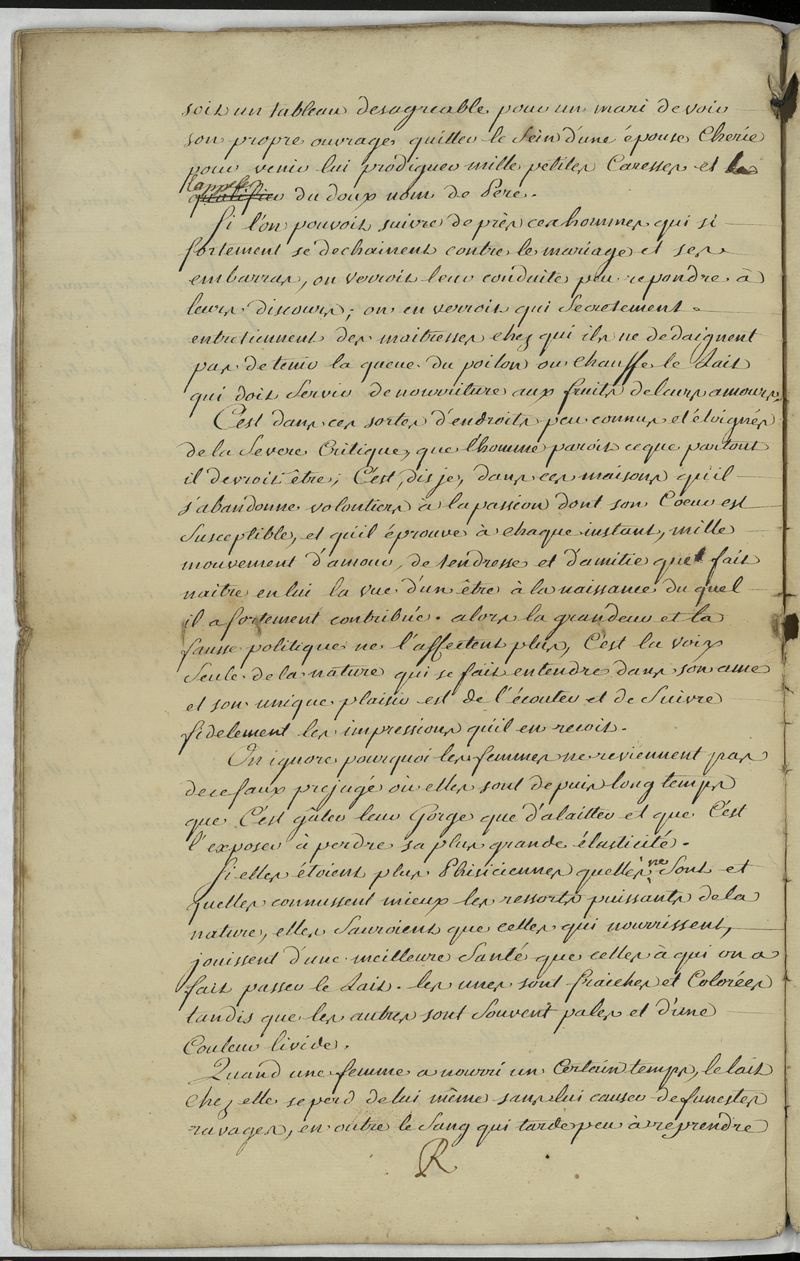 soit un tableau desagreable pour un mari de voir
son propre ouvrage quitter le Sein d'une épouse Cherie
pour venir lui prodiguer mille petites Caresses et
l'appeller
du doux nom de Pere.
Si l'on pouvoit suivre de près ces hommes qui si
fortement se dechainent contre le mariage et ses
embarras, on verroit leur conduite peu repondre à
leurs discours; on en verroit qui Secretement
entretiennent des maitresses chez qui ils ne dedaignent
pas de tenir la queue du poilon ou chauffe le Lait
qui doit Servir de nourriture aux fruits de leurs amours.
C'est dans ces sortes d'endroits peu connus et éloignés
de la Severe Critique, que l'homme paroit ce que partout
il devroit être; C'est, dis je, dans ces maisons qu'il
s'abandonne volontiers à la passion dont son Coeur est
Susceptible, et qu'il éprouve à chaque instant, mille
mouvement d'amour, de tendresse et d'amitie que fait
naitre en lui la vue d'un être à la naissance du quel
il a fortement contribué. alors la grandeur et la
fausse politique ne l'affectent plus, C'est la voix
Seule de la nature qui se fait entendre dans son ame
et son unique plaisir est de l'écouter et de Suivre
fidelement les impressions qu'il en recoit.
On ignore pourquoi les femmes ne reviennent pas
de ce faux prejugé où elles sont depuis long temps
que C'est gâter leur Gorge que d'alaitter et que C'est
l'exposer à perdre sa plus grande élasticité.
Si elles étoient plus Phisiciennes quelles ne Sont et
quelles connussent mieux les ressorts puissants de la
nature, elles Sauroient que celles qui nourrissent,
jouissent d'une meilleure Santé que celles à qui on a
fait passer le Lait. les unes sont fraiches et Colorées
tandis que les autres sont Souvent pales et d'une
Couleur livide.
Quand une femme a nourri un Certain temps, le lait
Chez elle se perd de lui même sans lui causer de funestes
ravages, en outre le Sang qui tarde peu à reprendre
R